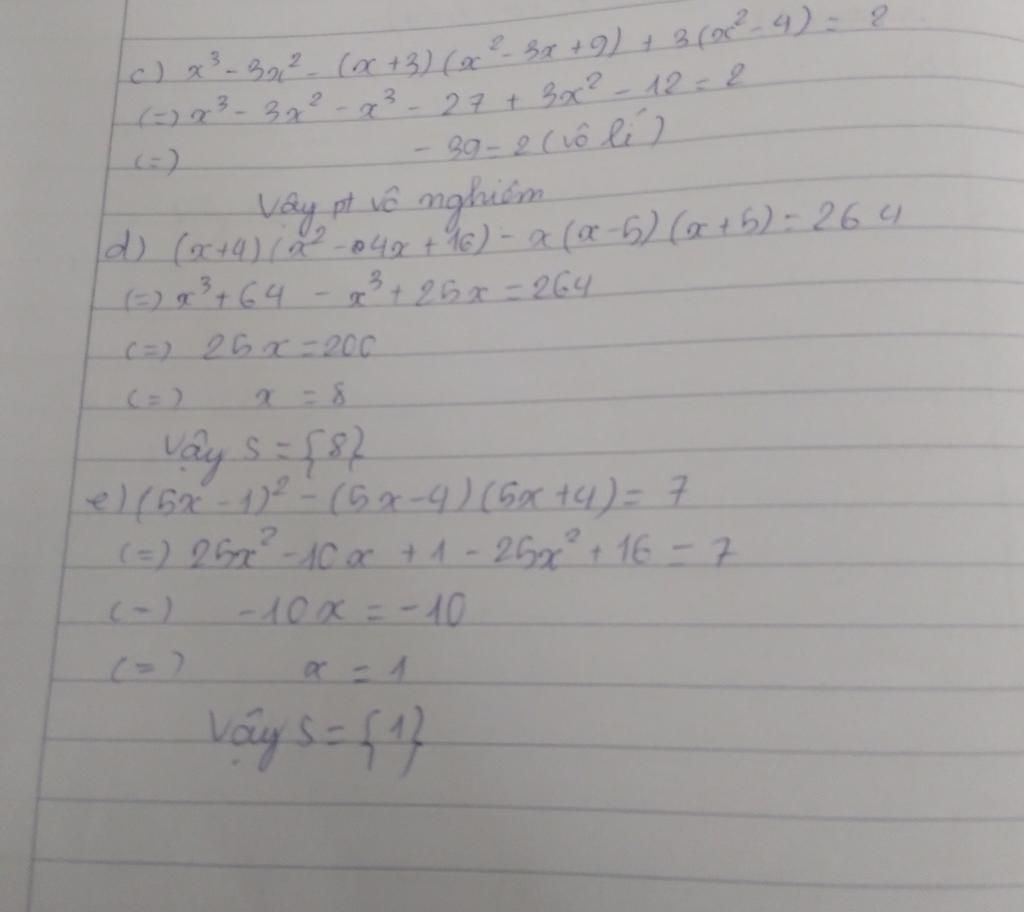 c) x³ - 3x² - (x+3)(x² - 3x + 9) + 3(x² - 4) = 2
(=) x³ - 3x² - x³ - 27 + 3x² - 12 = 2
(=) - 39 = 2 (vô lí)
Vậy pt vô nghiệm
d) (x+4)(x² - 4x + 16) - x(x-5)(x+5) = 264
(=) x³ + 64 - x³ + 25x = 264
(=) 25x = 200
(=) x = 8
Vậy S = {8}
e) (5x - 1)² - (5x - 4)(5x + 4) = 7
(=) 25x² - 10x + 1 - 25x² + 16 = 7
(=) -10x = -10
(=) x = 1
Vậy S = {1}